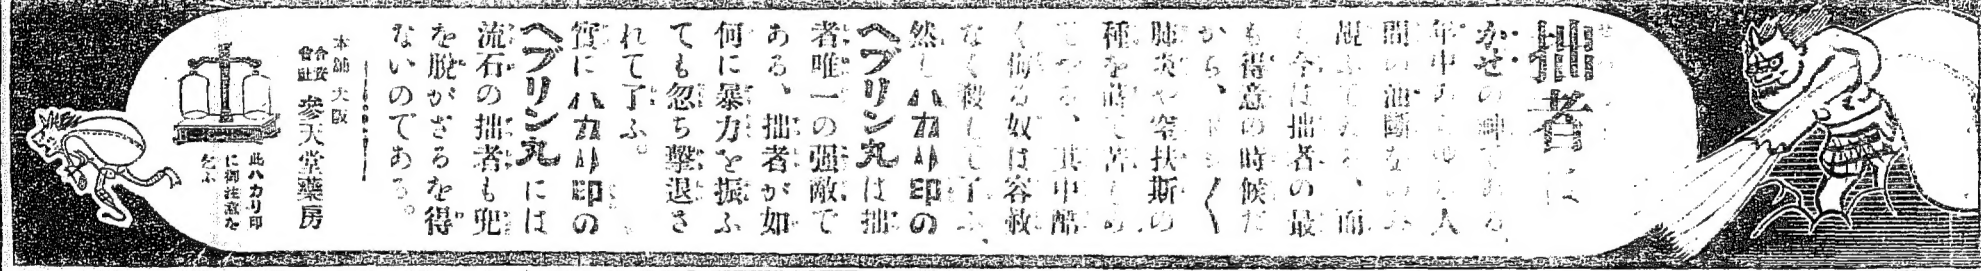 拙者は
かぜの神である、
年中 人
間の油斷のみ
覗ふてゐる、而
も今は拙者の最
も得意の時候だ
から、 く
肺炎や窒扶斯の
種を蒔て
てゐる、其中酷
く侮る奴は容赦
なく殺して了ふ、
然しハカリ印の
ヘブリン丸は拙
者唯一の强敵で
ある、拙者が如
何に暴力を振ふ
ても忽ち擊退さ
れて了ふ。
實にハカリ印の
ヘブリン丸には
流石の拙者も兜
を脫がざるを得
ないのである。
本舖 大阪
合資會社 參天堂藥房
此ハカリ印
に御注意を
乞ふ